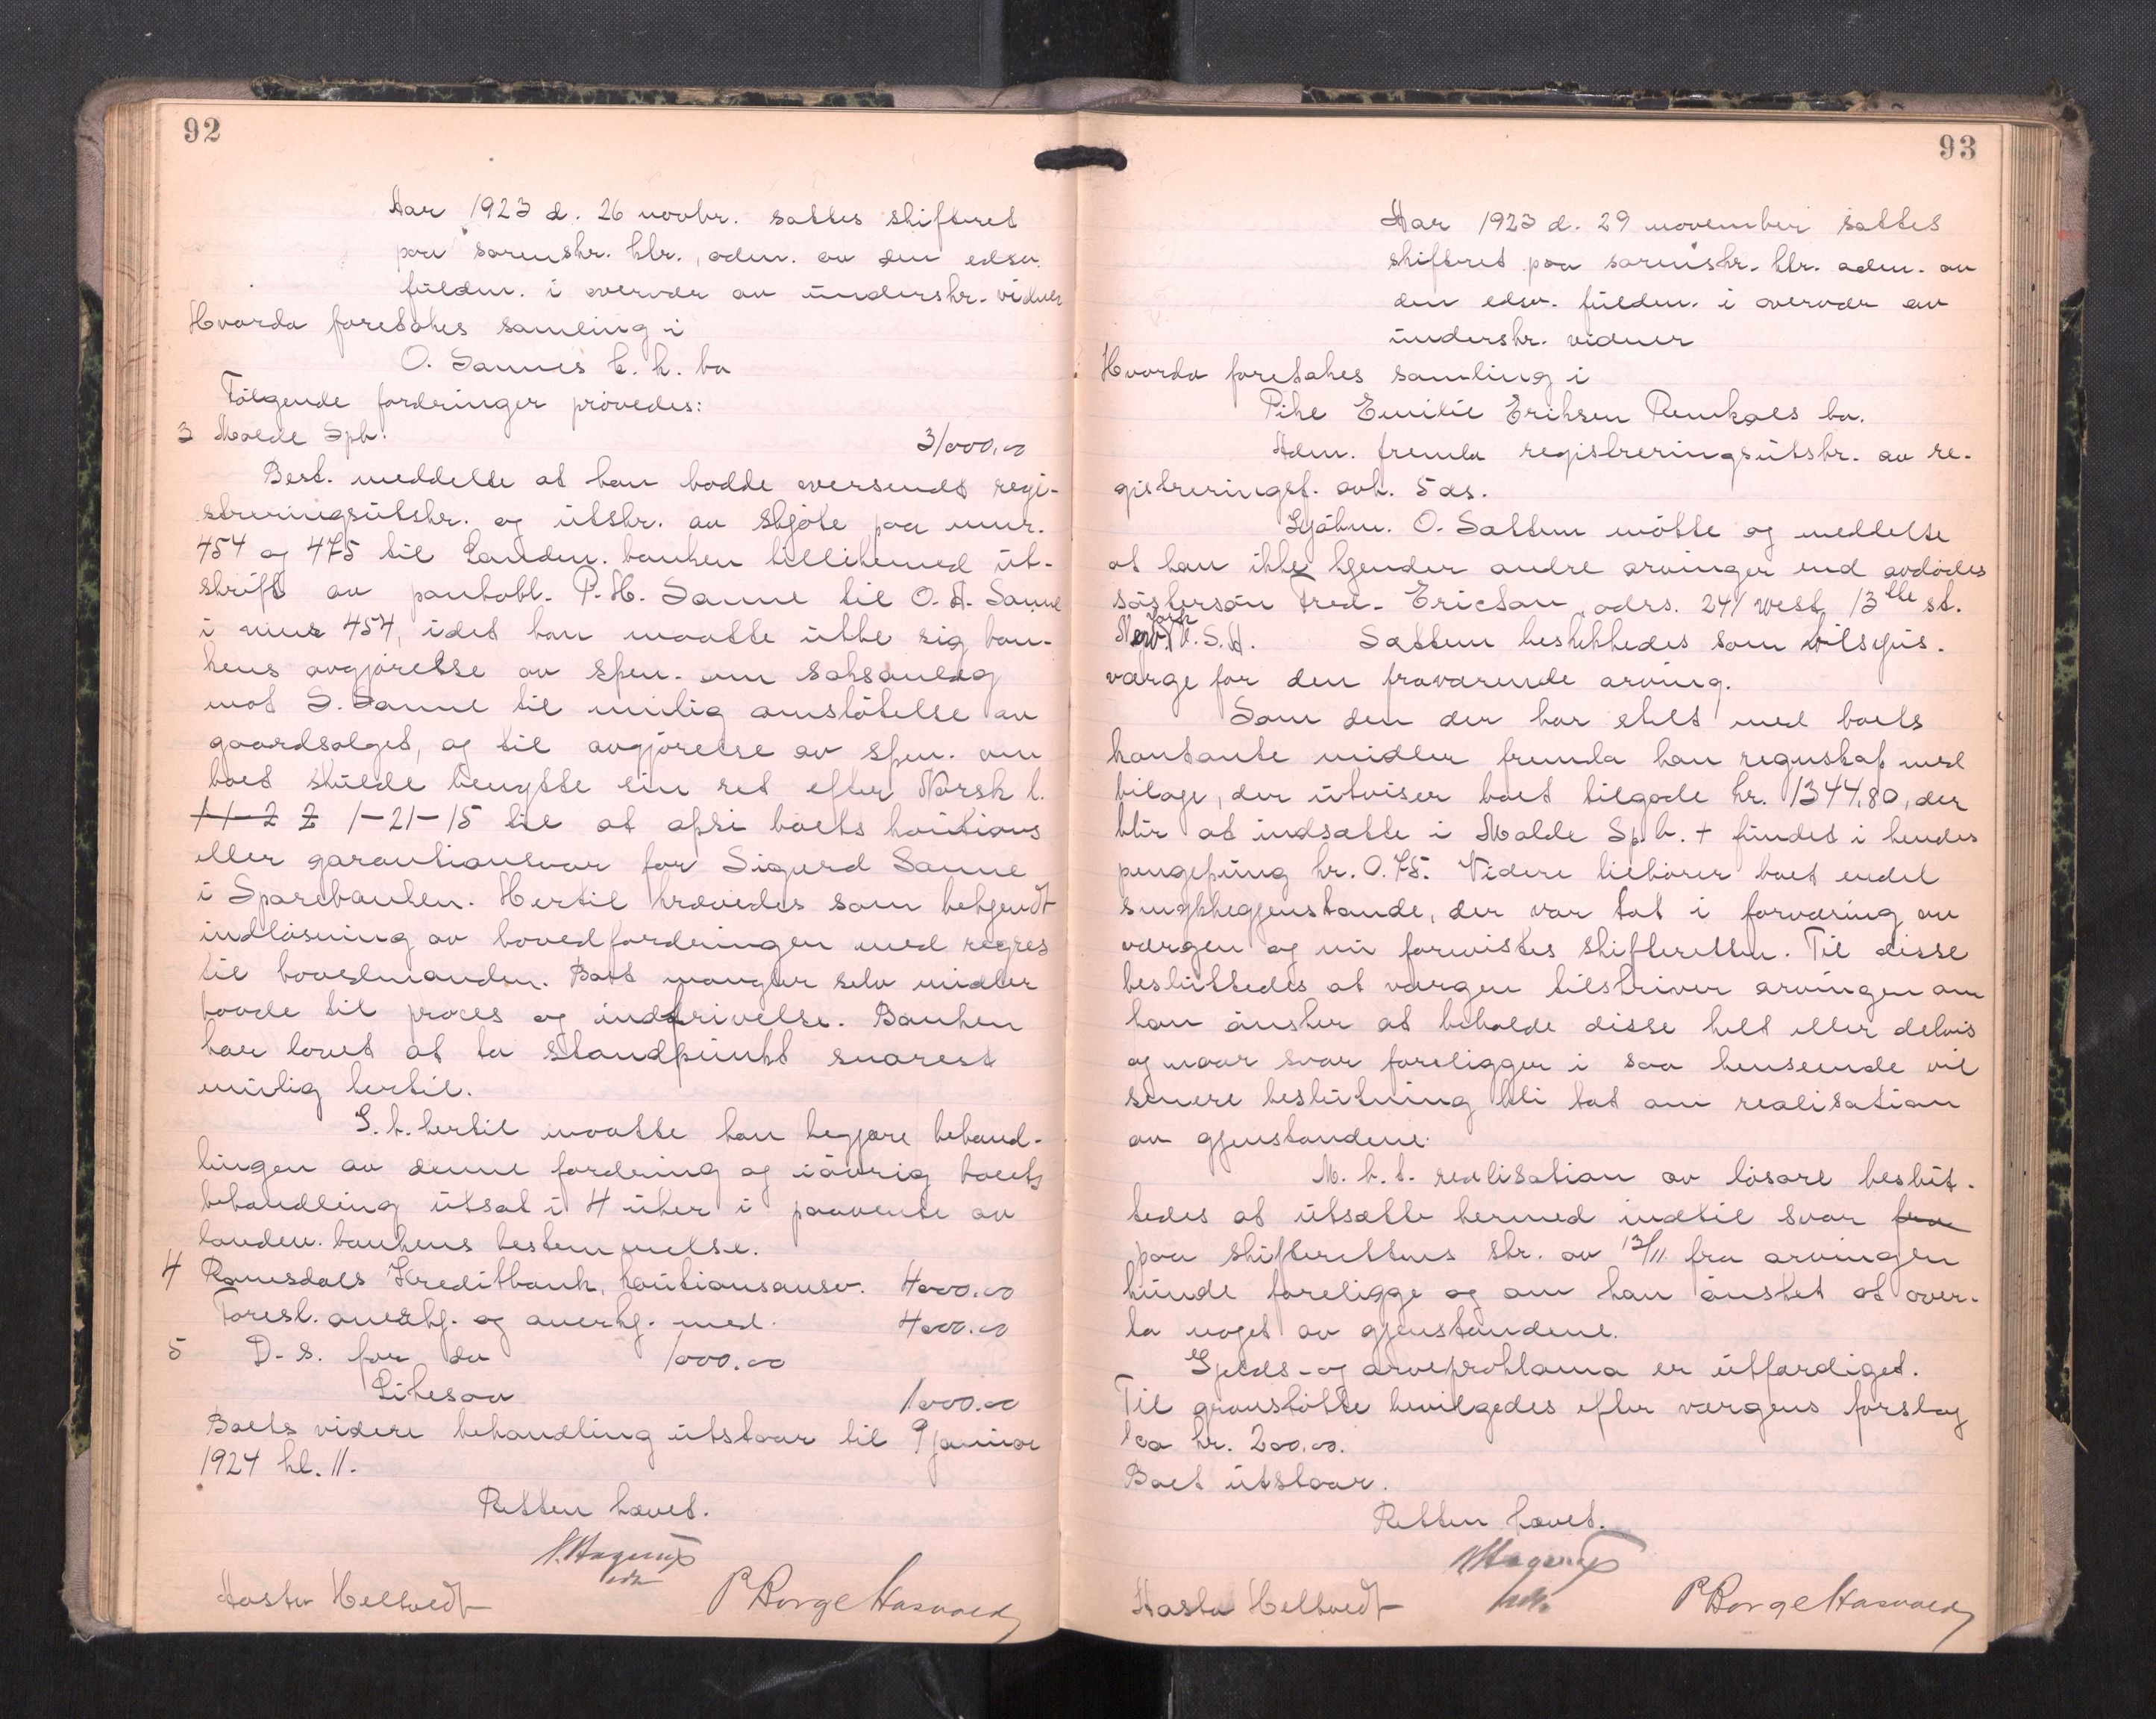 92
Aar 1923 d. 26 novbr. sattes skifteret
paa sorenskr. ktr., adm. av den edsv.
fuldm. i overvær av underskr. vidner
Hvorda foretokes samling i
O. Sannes t. k. bo
Følgende fordringer prøvedes:
3 Molde Spb. 31000.00
Best. meddelte at han hadde oversendt regi-
streringsutskr. og utskr. av skjøte paa mnr.
454 og 475 til Landm. banken tillikemed ut-
skrift av pantobl. P. H. Sanne til O. A. Sanne
i mnr 454, idet han maatte utbe sig ban-
kens avgjørelse av spm. om saksanlæg
mot S. Sanne til mulig omstøtelse av
gaardsalget, og til avgjørelse av spm. om
boet skulde benytte sin ret efter Norsk l.
1-21-15 til at opsi boets kautions
eller garantiansvar for Sigurd Sanne
i Sparebanken. Hertil krævedes som bekjendt
indløsning av hovedfordringen med regres
til hovedmanden. Boet mangler selv midler
baade til proces og inddrivelse. Banken
har lovet at ta standpunkt snarest
mulig hertil.
I. h. hertil maatte han begjære behand-
lingen av denne fordring og iøvrig boets
behandling utsat i 4 uker i paavente av
landm. bankens bestemmelse.
4 Romsdals Kreditbank, kautionsansv. 4000.00
Foresl. anerkj. og anerkj. med. 4000.00
5 D. s. for do 1000.00
Likesaa 1000.00
Boets videre behandling utstaar til 9 januar
1924 kl. 11.
Retten hævet.
H. Hagerup
edsv.
Aasta Heltvedt P Borge Hasvold
93
Aar 1923 d. 29 november sattes
skifteret paa sorenskr. ktr. adm. av
den edsv. fuldm. i overvær av
underskr. vidner
Hvorda foretokes samling i
Pike Emilie Eriksen Remkæls bo.
Adm. fremla registreringsutskr. av re-
gistreringsf. avh. 5 ds.
Skjøhm. O. Sættem møtte og meddelte
at han ikke kjender andre arvinger end avdødes
søstersøn Fred. Erictson, adrs. 241 West, 13the st.
New York U.S.A. Sættem beskikkedes som tilsyns-
værge for den fraværende arving.
Som den der har stelt med boets
kontante midler fremla han regnskap med
bilage, der utviser boet tilgode kr. 1344,80, der
blir at indsætte i Molde Sp.b. + fundet i hendes
pengepung kr. 0.75. Videre tilhører boet endel
smykkegjenstande, der var tat i forvaring av
værgen og nu forevistes skifteretten. Til disse
besluttedes at værgen tilskriver arvingen om
han ønsker at beholde disse helt eller delvis
og naar svar foreligger i saa henseende vil
senere beslutning bli tat om realisation
av gjenstandene.
M. h. t. realisation av løsøre beslut-
tedes at utsætte hermed indtil svar fra
paa skifterettens skr. av 12/11 fra arvingen
kunde foreligge og om han ønsket at over-
ta noget av gjenstandene.
Gjelds- og arveproklama er utfærdiget.
Til gravstøtte bevilgedes efter værgens forslag
ca kr. 200,00.
Boet utstaar.
Retten hævet.
H Hagerup
edsv.
Aasta Heltvedt P Borge Hasvold